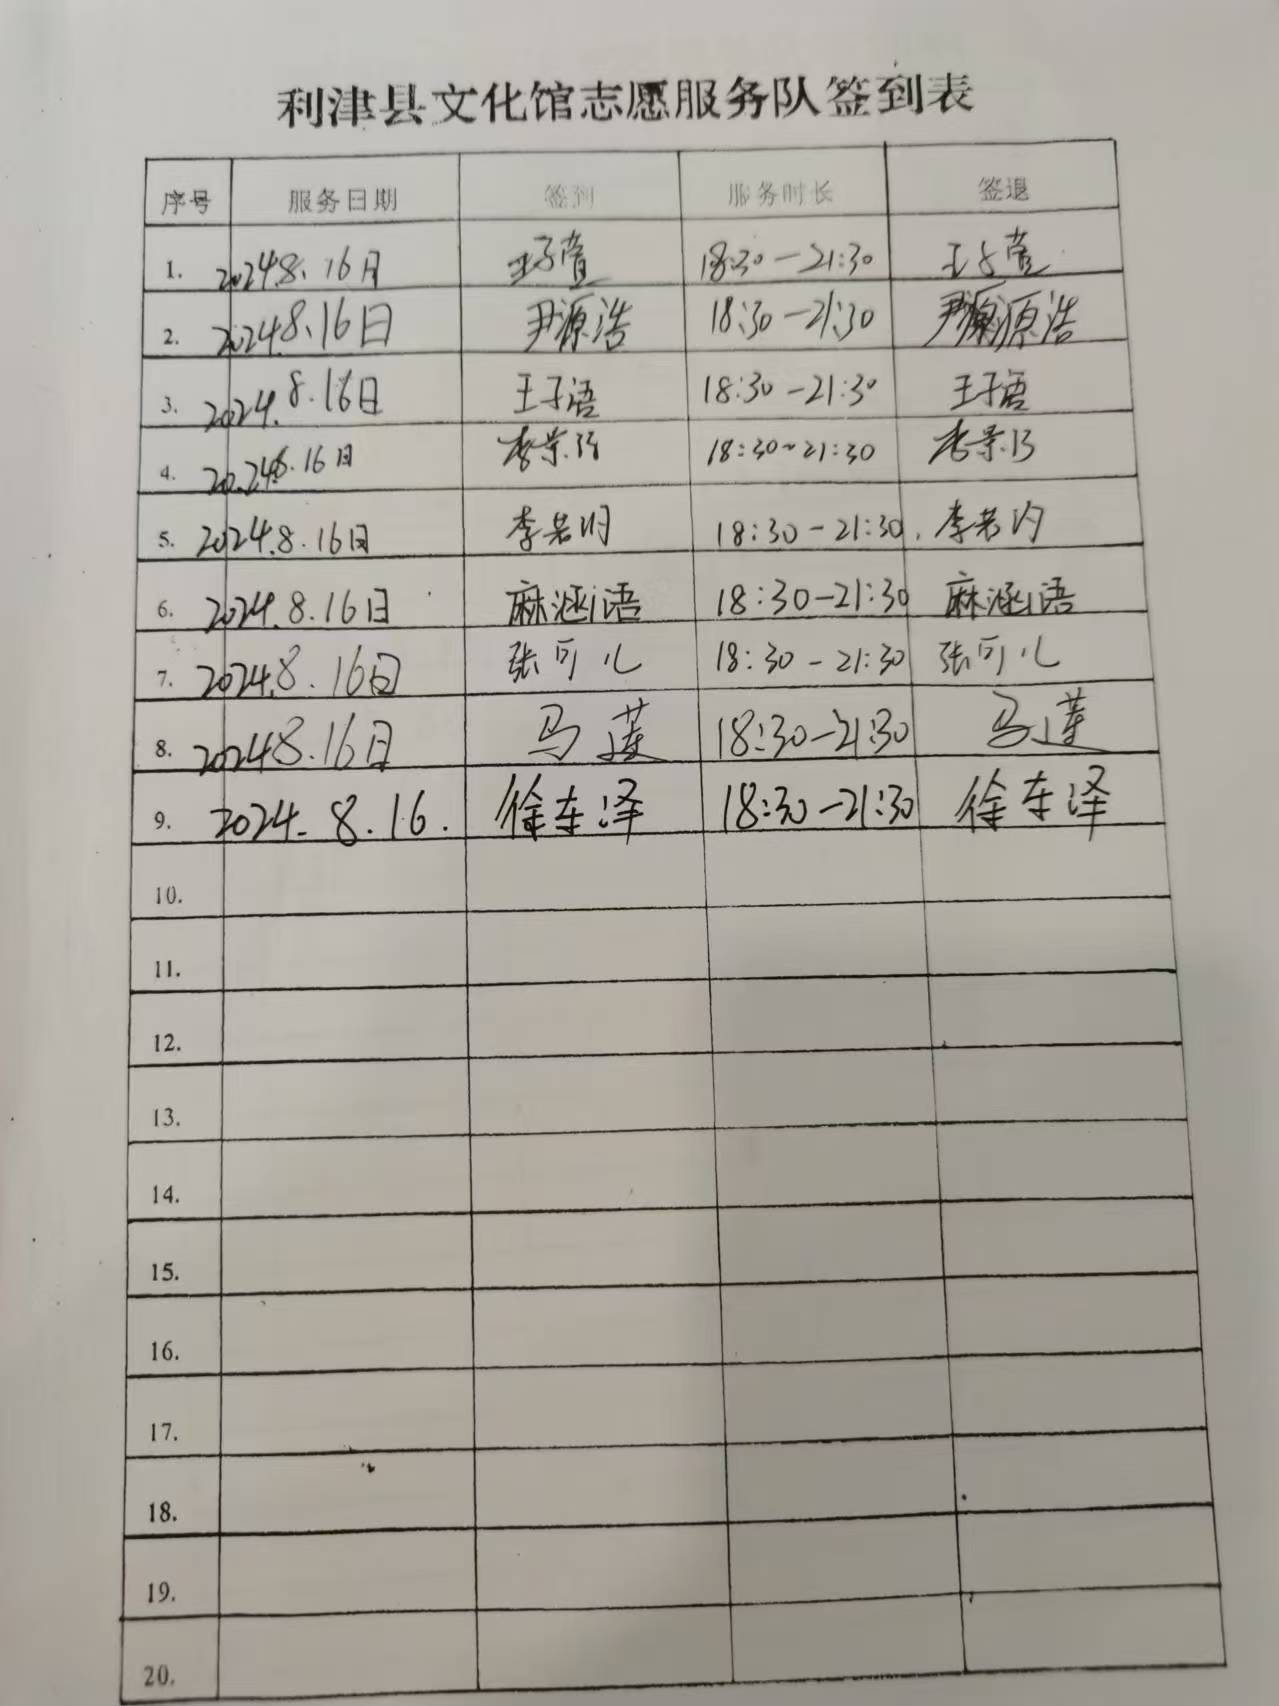 利津县文化馆志愿服务队签到表
序号 服务日期 签到 服务时长 签退
1. 2024.8.16日 王子萱 18:30-21:30 王子萱
2. 2024.8.16日 尹源浩 18:30-21:30 尹源浩
3. 2024.8.16日 王子语 18:30-21:30 王子语
4. 2024.8.16日 18:30~21:30
5. 2024.8.16日 18:30-21:30
6. 2024.8.16日 麻涵语 18:30-21:30 麻涵语
7. 2024.8.16日 张可儿 18:30-21:30 张可儿
8. 2024.8.16日 马莲 18:30-21:30 马莲
9. 2024.8.16. 徐东泽 18:30-21:30 徐东泽
10.
11.
12.
13.
14.
15.
16.
17.
18.
19.
20.